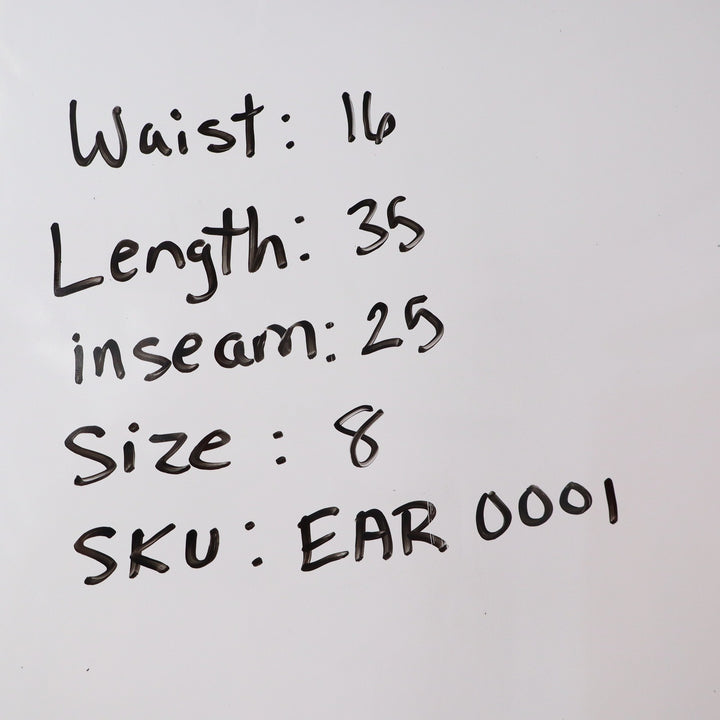 Waist: 16
Length: 35
inseam: 25
Size: 8
SKU: EAR 0001